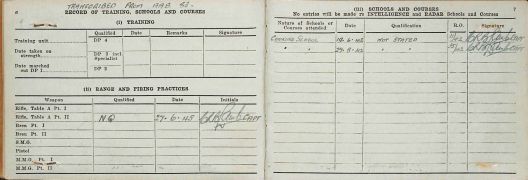 6
TRANSCRIBED FROM AAB 83.
RECORD OF TRAINING, SCHOOLS AND COURSES
(i) TRAINING
Qualified Date Remarks Signature
Training unit DP 4
Date taken on strength DP 3 incl. Specialist
Date marched out DP 1. DP 2
(ii) RANGE AND FIRING PRACTICES
Weapon Qualified Date Initials
Rifle, Table A Pt. I
Rifle, Table A Pt. II N.Q 27-6-45 CAPT
Bren Pt. I
Bren Pt. II
S.M.G.
Pistol
M.M.G. Pt. I
M.M.G. Pt. II
7
(iii) SCHOOLS AND COURSES
No entries will be made re INTELLIGENCE and RADAR Schools and Courses
Nature of Schools or Courses attended Date Qualification R.O. Signature
COOKING SCHOOL NOT STATED CAPT
" " " " CAPT